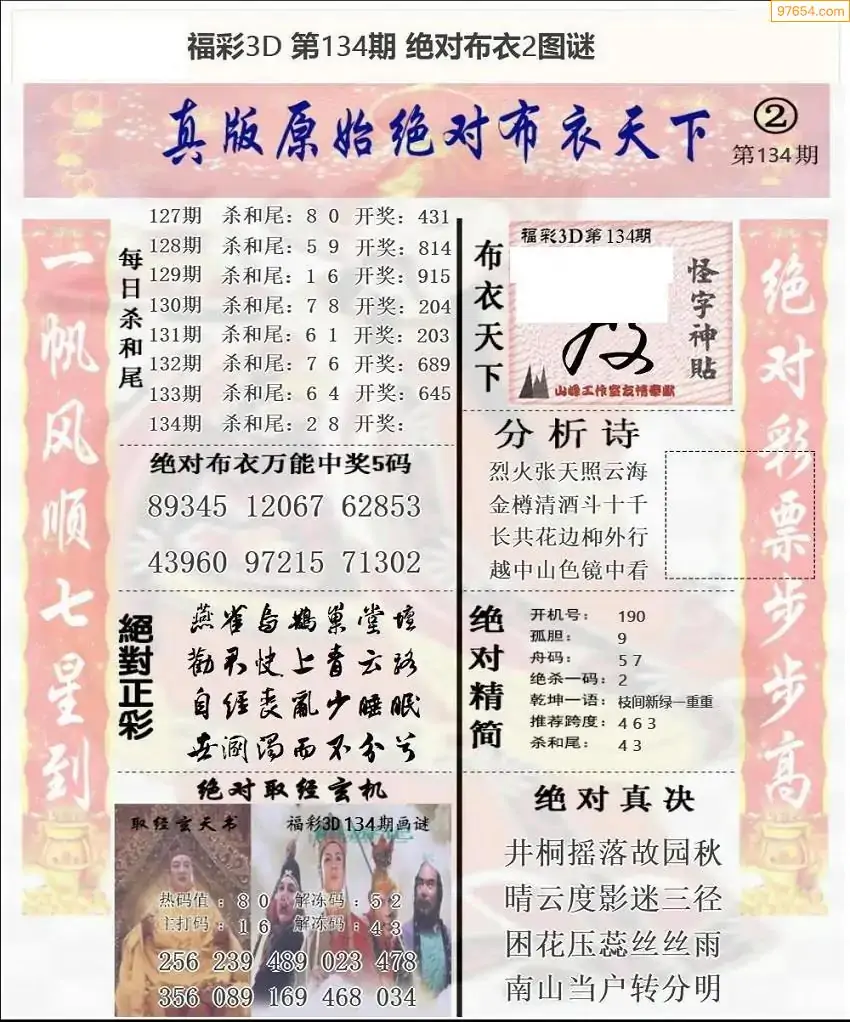 97654.com
福彩3D 第134期 绝对布衣2图谜
真版原始绝对布衣天下
②
第134期
一帆风顺七星到
每日杀和尾
127期 杀和尾：8 0 开奖：431
128期 杀和尾：5 9 开奖：814
129期 杀和尾：1 6 开奖：915
130期 杀和尾：7 8 开奖：204
131期 杀和尾：6 1 开奖：203
132期 杀和尾：7 6 开奖：689
133期 杀和尾：6 4 开奖：645
134期 杀和尾：2 8 开奖：
绝对布衣万能中奖5码
89345 12067 62853
43960 97215 71302
絕對正彩
燕雀乌鹊巢堂坛
劝君快上青云路
自经丧乱少睡眠
世溷浊而不分兮
绝对取经玄机
取经玄天书
福彩3D134期画谜
热码值：8 0 解冻码：5 2
主打码：1 6 解冻码：4 3
256 239 489 023 478
356 089 169 468 034
布衣天下
福彩3D第134期
怪字神贴
山峰工作室友情奉献
分析诗
烈火张天照云海
金樽清酒斗十千
长共花边柳外行
越中山色镜中看
绝对精简
开机号： 190
孤胆： 9
舟码： 5 7
绝杀一码：2
乾坤一语：枝间新绿一重重
推荐跨度：4 6 3
杀和尾： 4 3
绝对真决
井桐摇落故园秋
晴云度影迷三径
困花压蕊丝丝雨
南山当户转分明
绝对彩票步步高